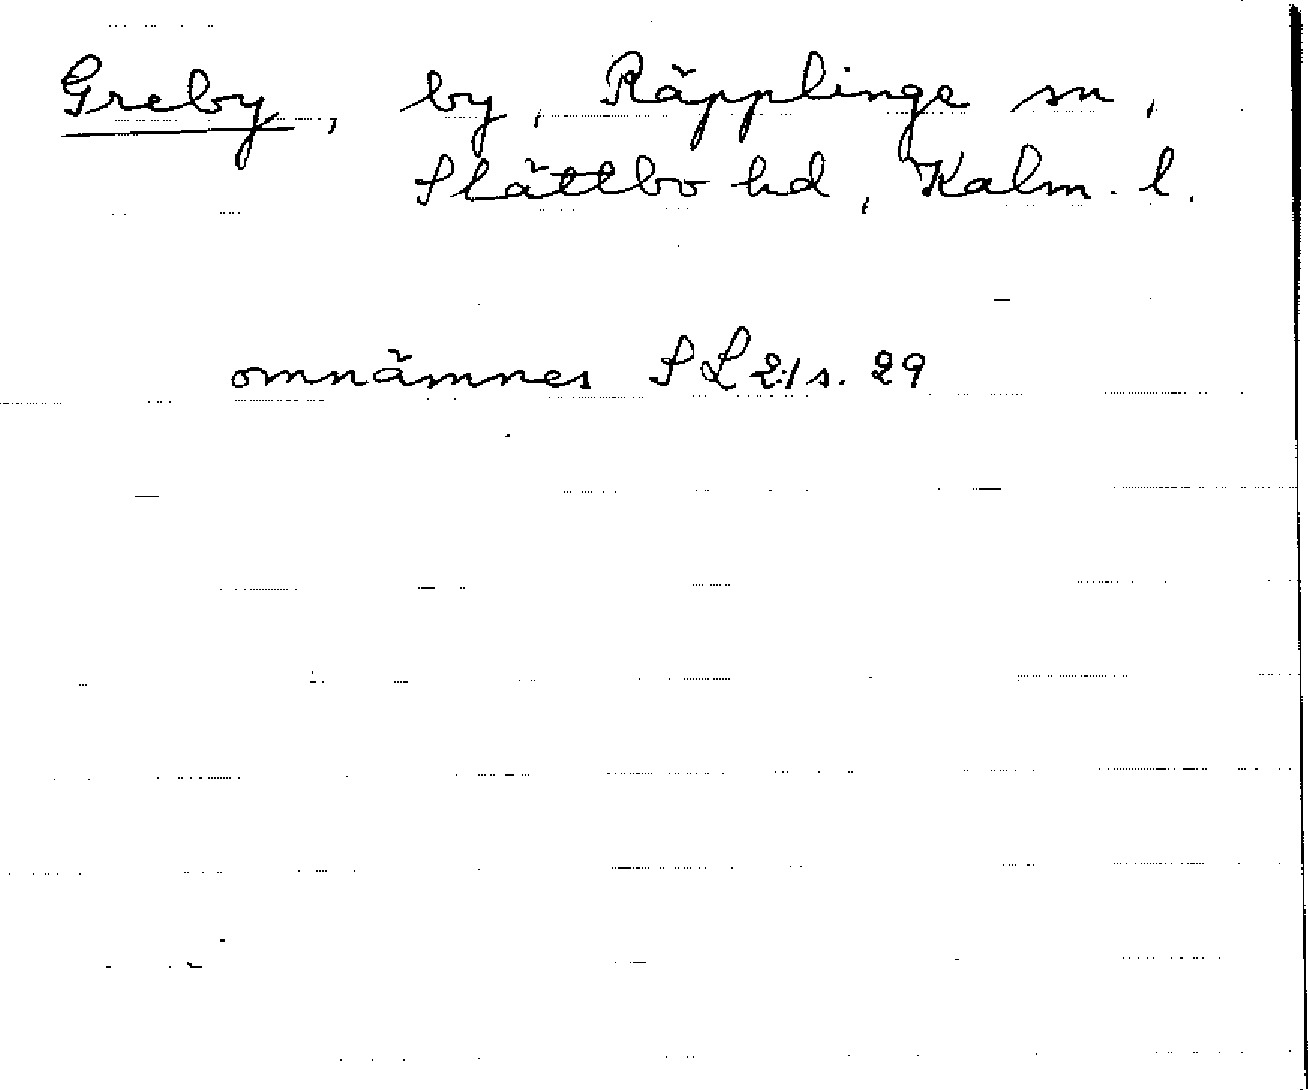 Greby, by, Räpplinge sn,
Slättbo hd, Kalm. l.
omnämnes SL 2:1 s. 29